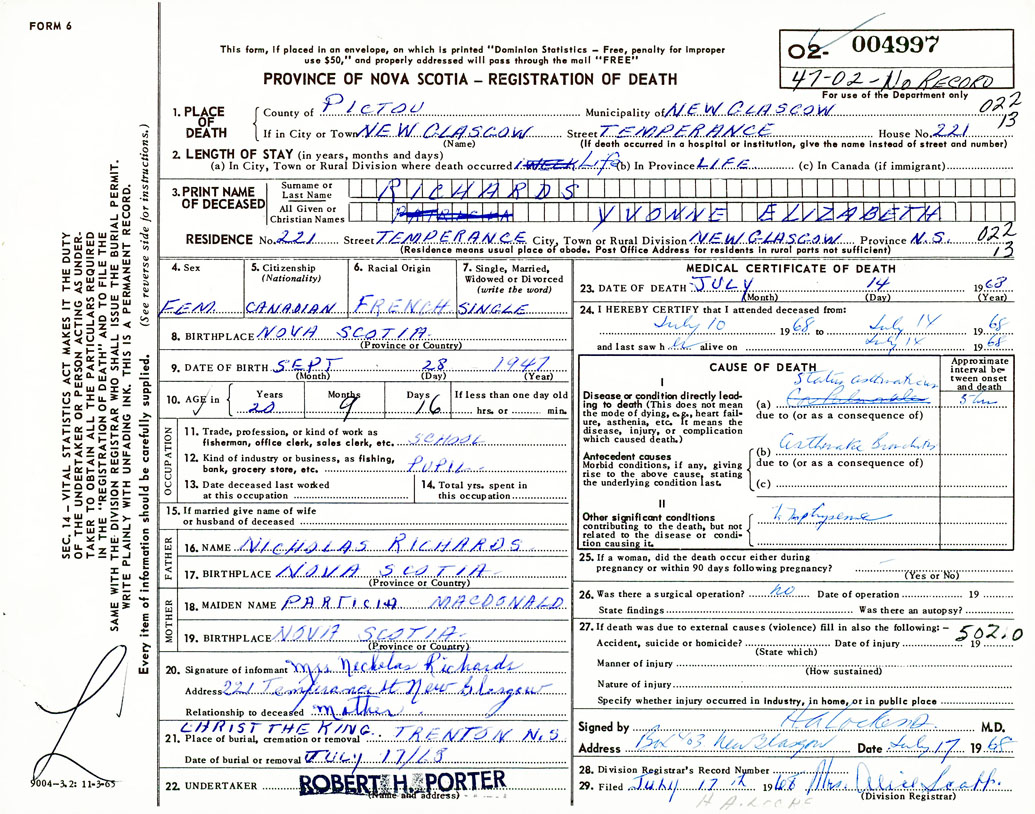 FORM 6
02- 004997
47-02-NO RECORD
For use of the Department only
This form, if placed in an envelope, on which is printed "Dominion Statistics – Free, penalty for improper
use $50," and properly addressed will pass through the mail "FREE"
PROVINCE OF NOVA SCOTIA – REGISTRATION OF DEATH
022
13
1. PLACE OF DEATH { County of PICTOU Municipality of NEW GLASGOW
If in City or Town NEW GLASGOW Street TEMPERANCE House No. 221
(Name) (If death occurred in a hospital or institution, give the name instead of street and number)
2. LENGTH OF STAY (in years, months and days)
(a) In City, Town or Rural Division where death occurred 1 WEEK Life (b) In Province LIFE (c) In Canada (if immigrant)
3. PRINT NAME OF DECEASED { Surname or Last Name RICHARDS
All Given or Christian Names YVONNE ELIZABETH
RESIDENCE No. 221 Street TEMPERANCE City, Town or Rural Division NEW GLASGOW Province N.S. 022
(Residence means usual place of abode. Post Office Address for residents in rural parts not sufficient) 13
4. Sex FEM.
5. Citizenship (Nationality) CANADIAN
6. Racial Origin FRENCH
7. Single, Married, Widowed or Divorced (write the word) SINGLE
8. BIRTHPLACE NOVA SCOTIA
(Province or Country)
9. DATE OF BIRTH SEPT 28 1947
(Month) (Day) (Year)
10. AGE in { Years 20 Months 9 Days 16 If less than one day old hrs. or min.
OCCUPATION
11. Trade, profession, or kind of work as fisherman, office clerk, sales clerk, etc. SCHOOL
12. Kind of industry or business, as fishing, bank, grocery store, etc. PUPIL
13. Date deceased last worked at this occupation
14. Total yrs. spent in this occupation
15. If married give name of wife or husband of deceased
FATHER
16. NAME NICHOLAS RICHARDS
17. BIRTHPLACE NOVA SCOTIA
(Province or Country)
MOTHER
18. MAIDEN NAME PARTICIA MACDONALD
19. BIRTHPLACE NOVA SCOTIA
(Province or Country)
20. Signature of informant Mrs. Nickolas Richards
Address 221 Temperance St New Glasgow
Relationship to deceased Mother
CHRIST THE KING
21. Place of burial, cremation or removal TRENTON N.S.
Date of burial or removal JULY 17/68
22. UNDERTAKER ROBERT H. PORTER
(Name and address)
MEDICAL CERTIFICATE OF DEATH
23. DATE OF DEATH JULY 14 1968
(Month) (Day) (Year)
24. I HEREBY CERTIFY that I attended deceased from:
July 10 1968 to July 14 1968
and last saw h alive on July 14 1968
CAUSE OF DEATH
Approximate interval between onset and death
I
Disease or condition directly leading to death (This does not mean the mode of dying, e.g., heart failure, asthenia, etc. It means the disease, injury, or complication which caused death.)
Status asthmaticus
(a)
due to (or as a consequence of)
Antecedent causes
Morbid conditions, if any, giving rise to the above cause, stating the underlying condition last.
(b) Asthmatic Bronchitis
due to (or as a consequence of)
(c)
II
Other significant conditions contributing to the death, but not related to the disease or condition causing it. Emphysema
25. If a woman, did the death occur either during pregnancy or within 90 days following pregnancy?
(Yes or No)
26. Was there a surgical operation? no Date of operation 19
State findings Was there an autopsy?
27. If death was due to external causes (violence) fill in also the following: – 502.0
Accident, suicide or homicide? Date of injury 19
(State which)
Manner of injury
(How sustained)
Nature of injury
Specify whether injury occurred in industry, in home, or in public place
Signed by M.D.
Address Box 403 New Glasgow Date July 17 1968
28. Division Registrar's Record Number
29. Filed July 17th 1968 Mrs. Alice Scott
(Division Registrar)
SEC. 14 – VITAL STATISTICS ACT MAKES IT THE DUTY
OF THE UNDERTAKER OR PERSON ACTING AS UNDER-
TAKER TO OBTAIN ALL THE PARTICULARS REQUIRED
IN THE "REGISTRATION OF DEATH" AND TO FILE THE
SAME WITH THE DIVISION REGISTRAR WHO SHALL ISSUE THE BURIAL PERMIT.
WRITE PLAINLY WITH UNFADING INK. THIS IS A PERMANENT RECORD.
Every item of information should be carefully supplied. (See reverse side for instructions.)
9004–3.2: 11-3-65